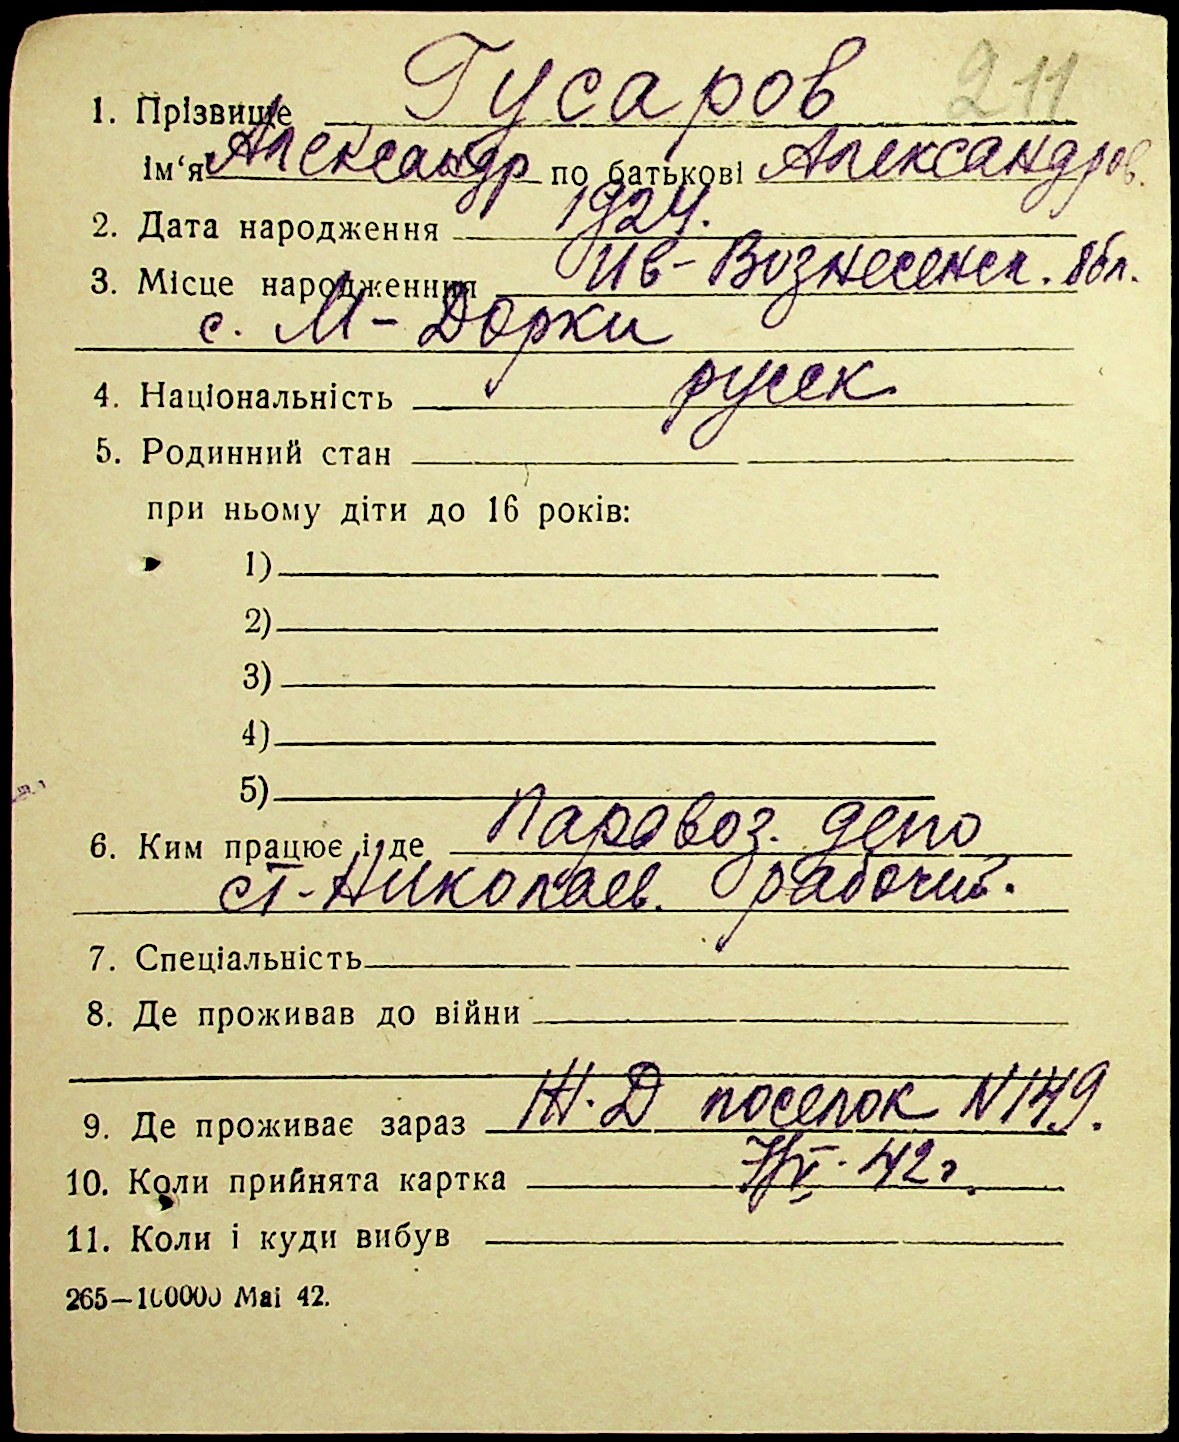 211
1. Прізвище Гусаров
ім‘я Александр по батькові Александров.
2. Дата народження 1924.
3. Місце народженння Ив-Вознесенск. обл.
с. М-Дорки
4. Національність русск
5. Родинний стан
при ньому діти до 16 років:
1)
2)
3)
4)
5)
6. Ким працює і де Паровоз. депо
ст-Николаев. рабочий.
7. Спеціальність
8. Де проживав до війни
9. Де проживає зараз Ж.Д поселок N149.
10. Коли прийнята картка 42г.
11. Коли і куди вибув
265—100000 Маі 42.